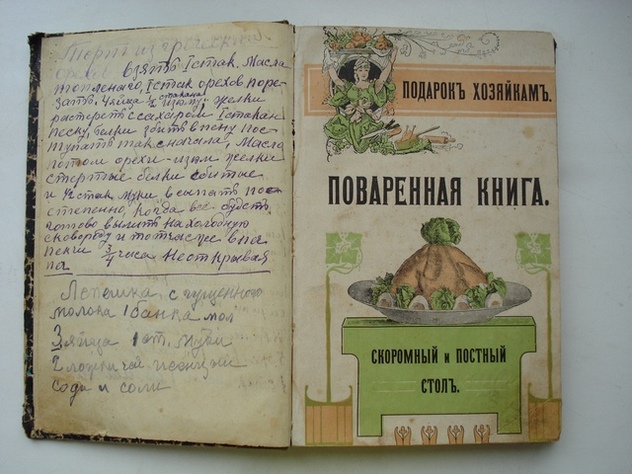 Торт из грецких
орехов взять 1 стак. Масла
топленаго, 1 стак орехов поре-
зать. 4 яйца ½ стакана изюму. желки
растереть с сахаром 1 стакан
песку, белки збить в пену пос
тупать так сначала, Масла
потом орехи - изюм желки
стертые белки сбитые
и 1 стак муки всыпать пос
степенно, когда всё будеть
готово вылить на холодную
сковороду и тотчас же в па
печки ¾ часа не открывая
па
Лепешка с сгущенного
молока 1 банка мол
3 яйца 1 ст. муки
2 ложки
сода и соли
ПОДАРОКЪ ХОЗЯЙКАМЪ.
ПОВАРЕННАЯ КНИГА.
СКОРОМНЫЙ и ПОСТНЫЙ
СТОЛЪ.